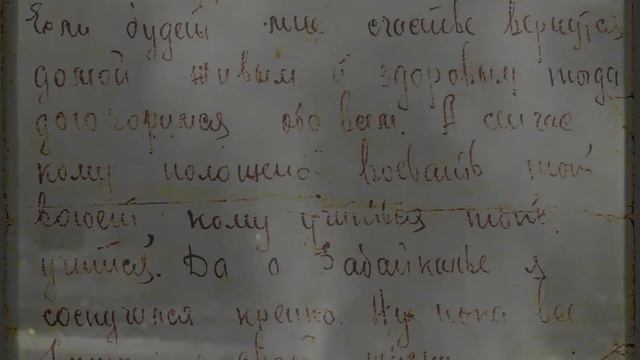 Если будет мне счастье вернутся
домой живым и здоровым тогда
договоримся обо всем. А сичас
кому положено воевать тот
воюет, кому учиться тот
учится. Да о Забайкалье я
соскучился крепко. Ну пока все